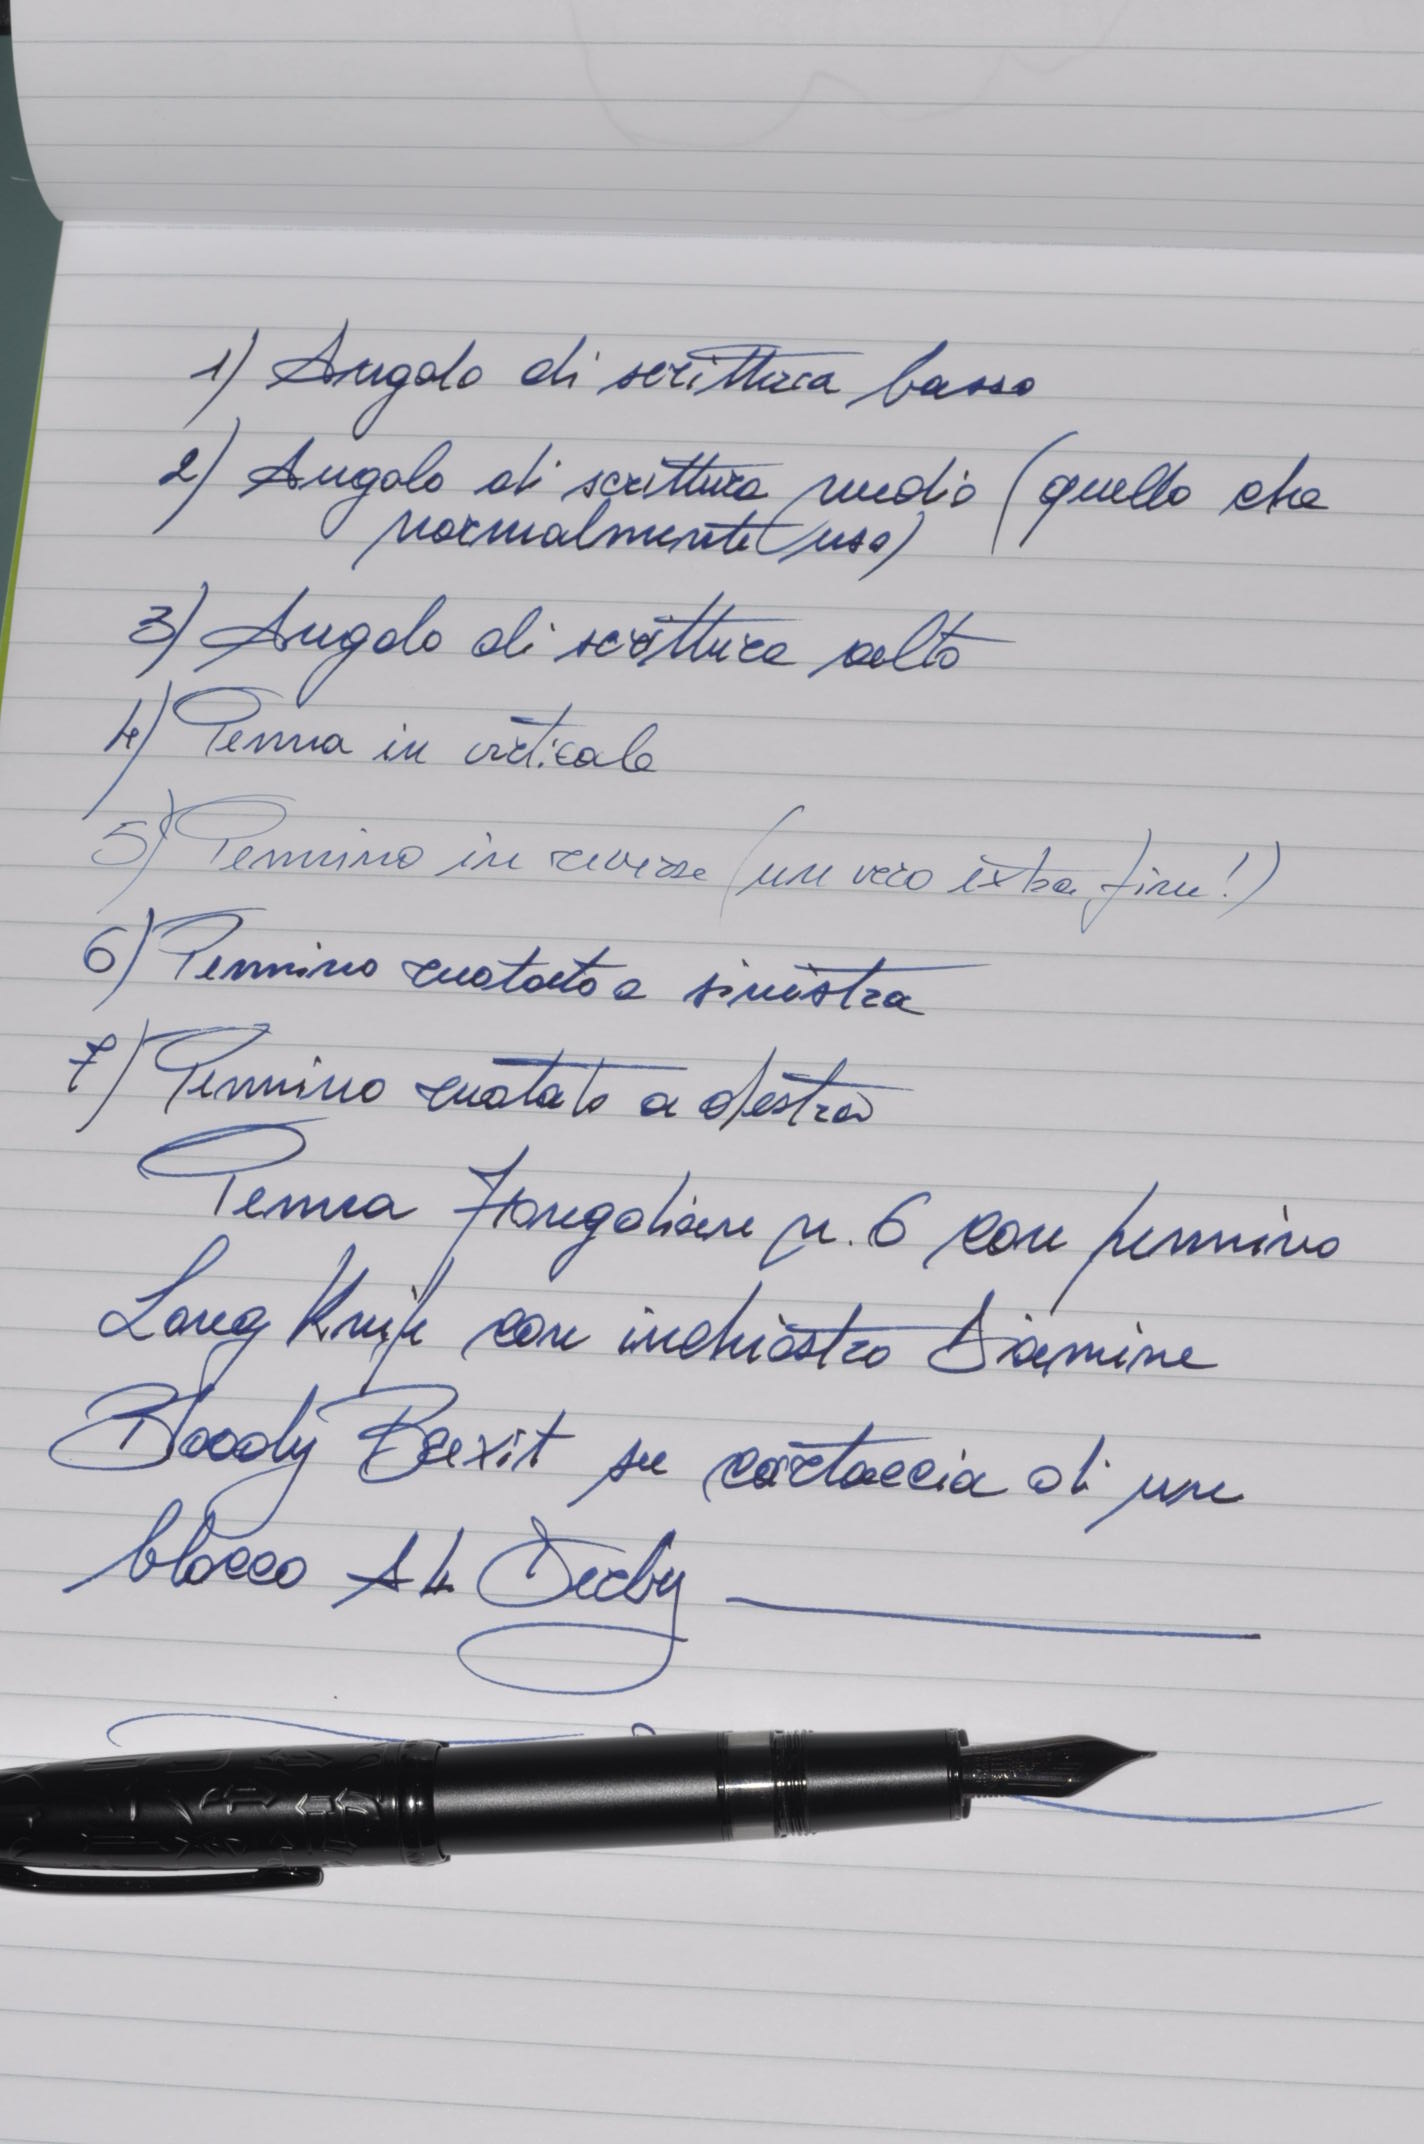 1) Angolo di scrittura basso
2) Angolo di scrittura medio (quello che
normalmente uso)
3) Angolo di scrittura alto
4) Penna in verticale
5) Pennino in reverse (un vero extra fine!)
6) Pennino ruotato a sinistra
7) Pennino ruotato a destra
Penna Hongdian n. 6 con pennino
Long Knife con inchiostro Diamine
Bloody Brexit su cartaccia di un
blocco A4 Derby